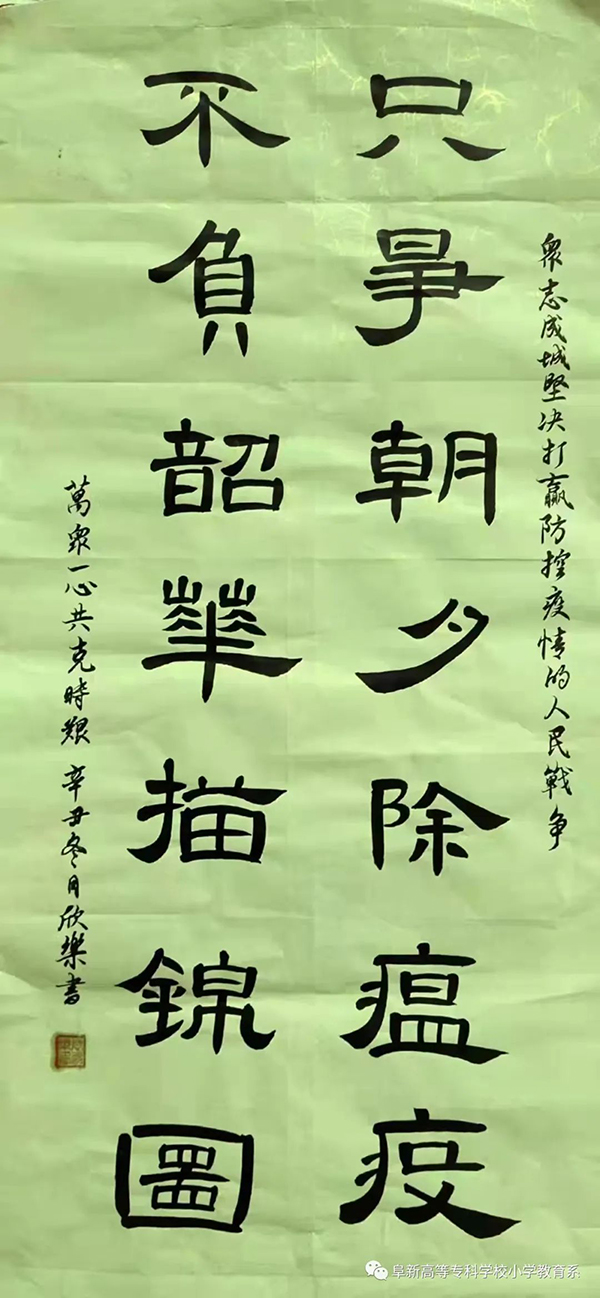 眾志成城堅决打贏防控疫情的人民戰争
只爭朝夕除瘟疫
不負韶華描錦圖
萬眾一心共克時艱 辛丑冬月欣樂書
阜新高等专科学校小学教育系